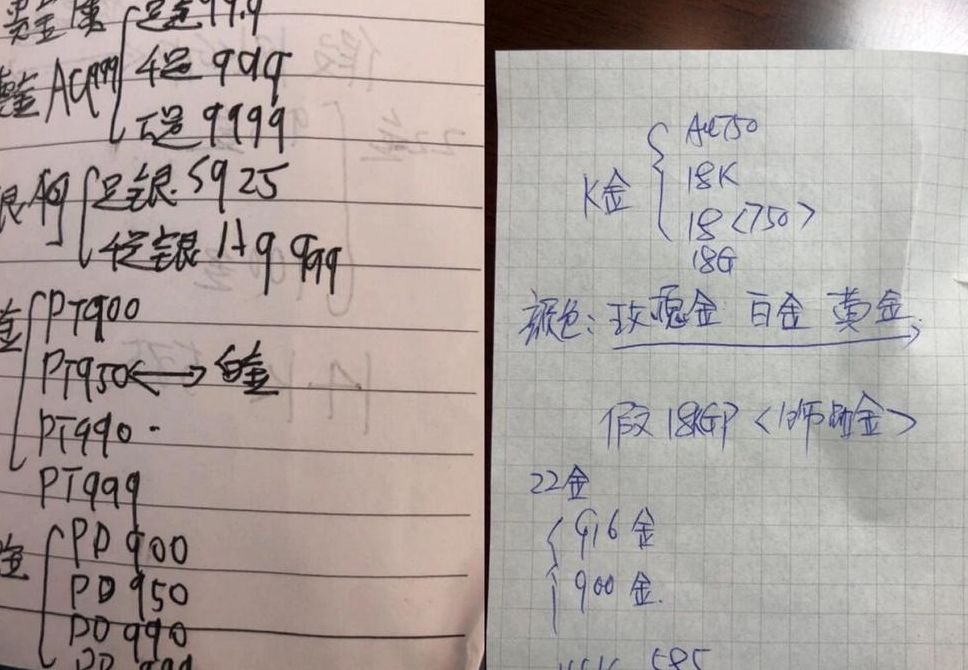 足金99.9
千足999
万足9999
Ag
足银.S925
千足银 Hg 999
金
PT900
PT950 白金
PT990
PT999
PD 900
PD 950
PD 990
K金
Au750
18K
18<750>
18G
颜色: 玫瑰金 百金 黄金
假 18KGP
22金
916 金
900 金.
585